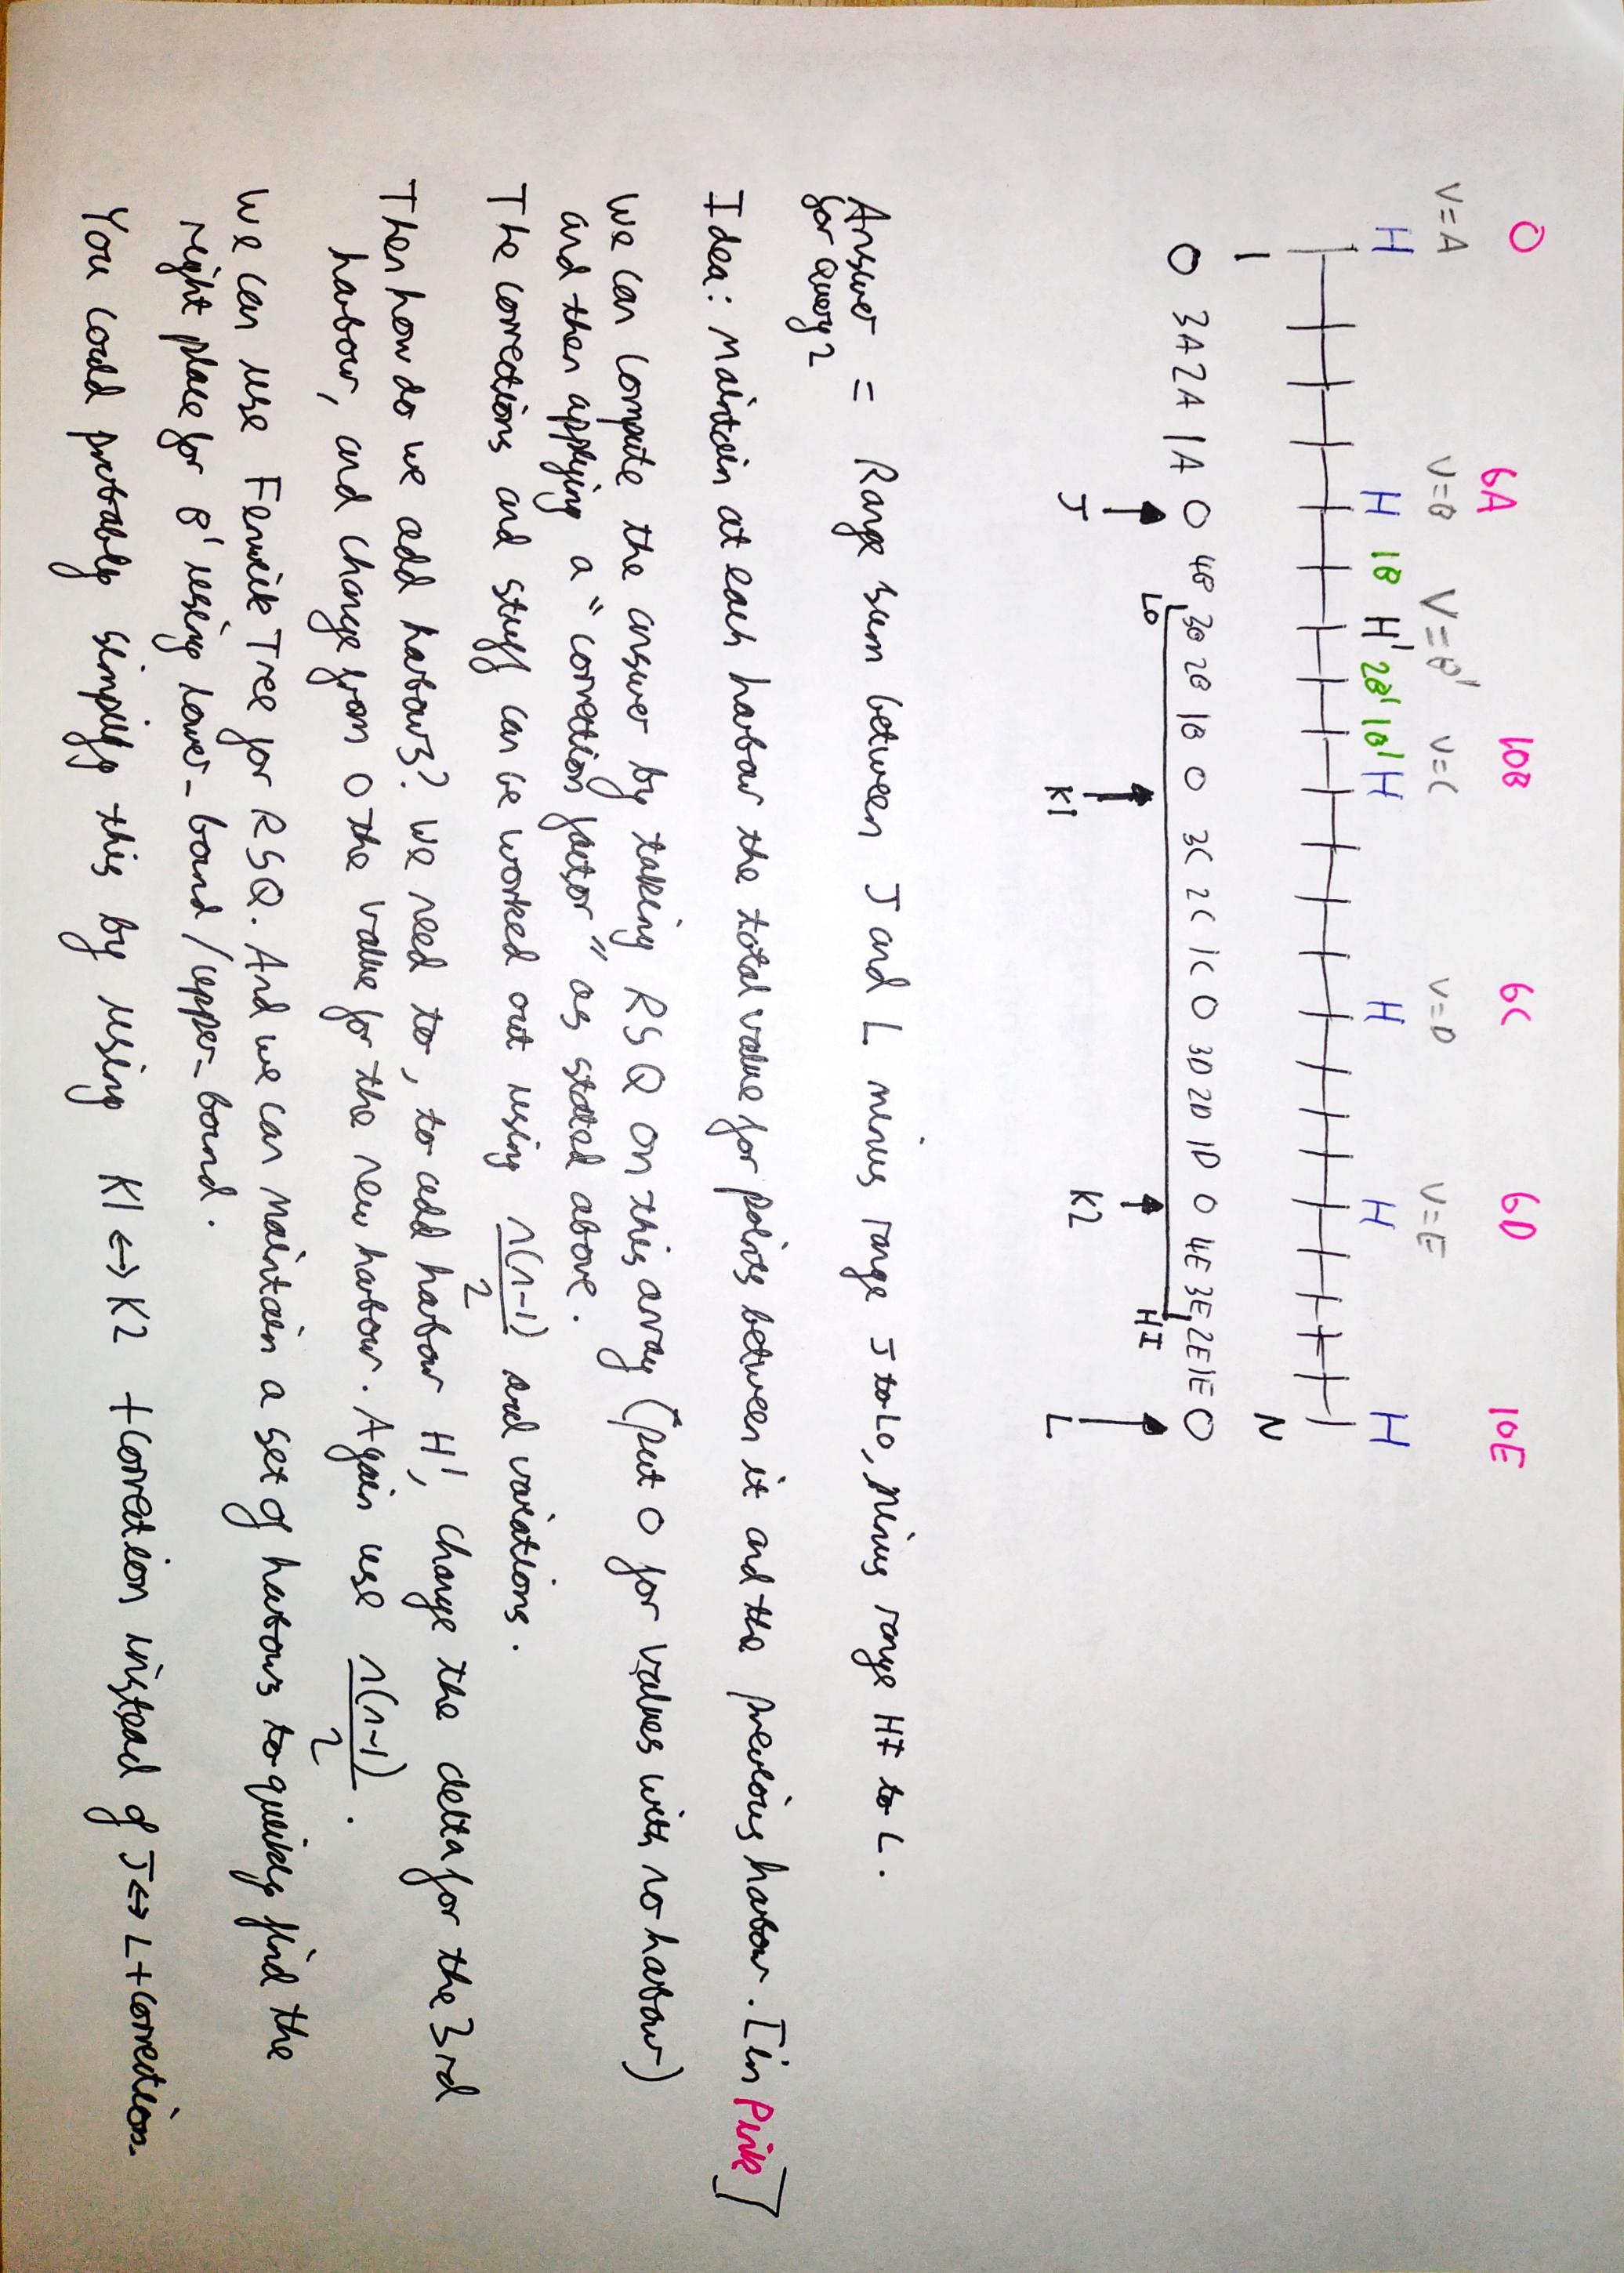 O 6A 10B 6C 6D 10E
V=A V=B V=B' V=C V=D V=E
H H 1B H' 2B' 1B' H H H H
1 N
O 3A 2A 1A O 4B 3B 2B 1B O 3C 2C 1C O 3D 2D 1D O 4E 3E 2E 1E O
LO HI
J K1 K2 L
Answer = Range sum between J and L minus range J to LO, minus range HI to L.
for Query 2
Idea: Maintain at each harbour the total value for points between it and the previous harbour. [in Pink]
We can compute the answer by taking RSQ on this array (put 0 for values with no harbour)
and then applying a "correction factor" as stated above.
The corrections and stuff can be worked out using n(n-1)/2 and variations.
Then how do we add harbours? We need to, to add harbour H', change the delta for the 3rd
harbour, and change from 0 the value for the new harbour. Again use n(n-1)/2.
We can use Fenwick Tree for RSQ. And we can maintain a set of harbours to quickly find the
right place for B' using lower_bound/upper_bound.
You could probably simplify this by using K1 ↔ K2 + correction instead of J ↔ L + correction.